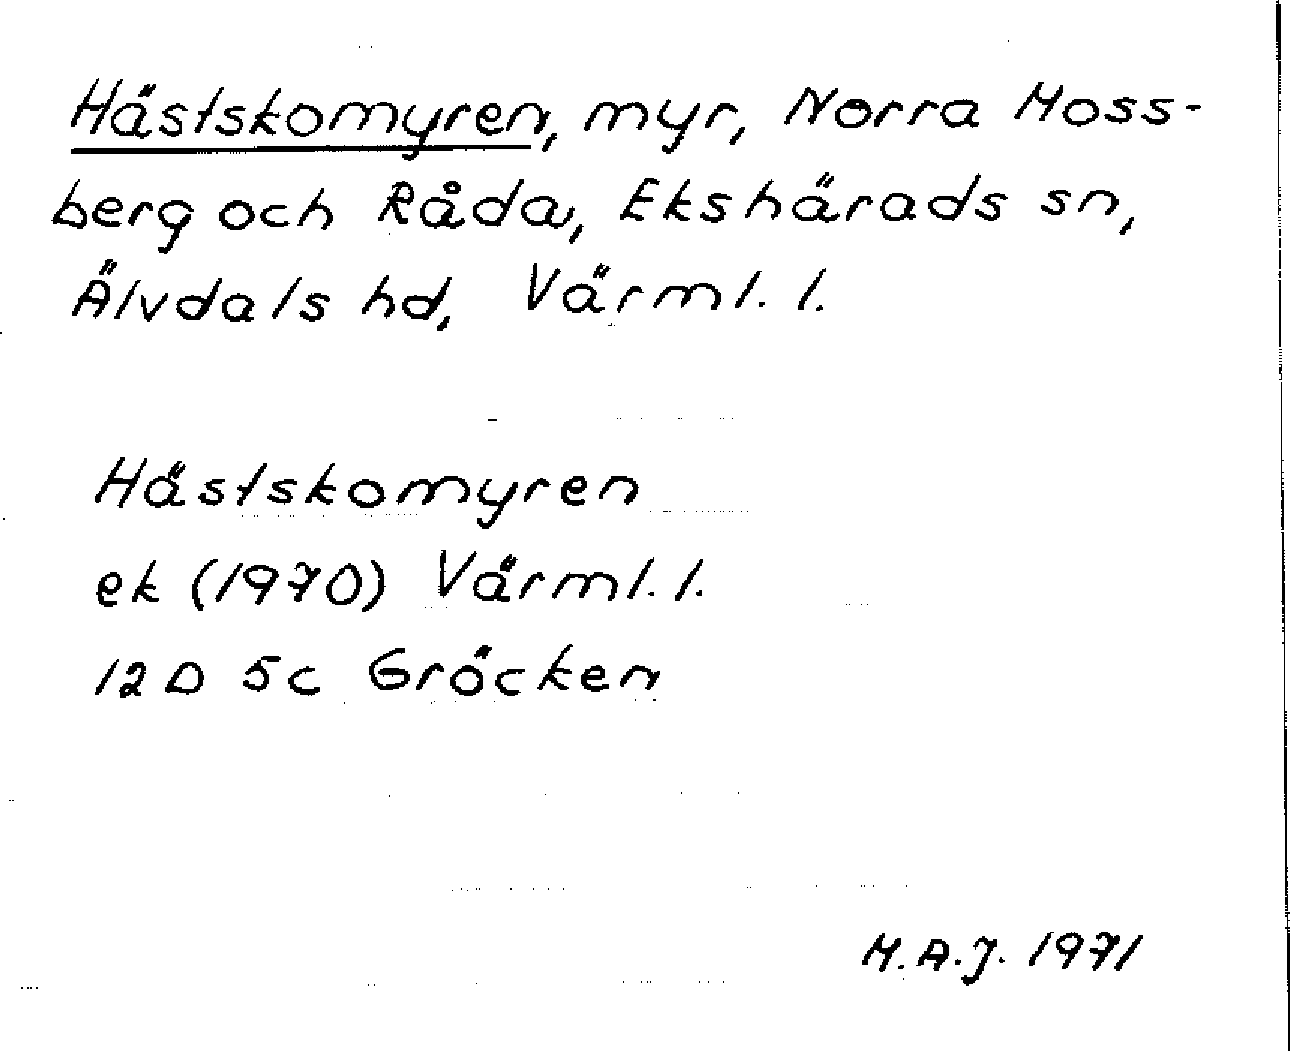 Hästskomyren, myr, Norra Moss-
berg och Råda, Ekshärads sn,
Älvdals hd, Värml. l.
Hästskomyren
ek (1970) Värml. l.
12D 5c Gröcken
M.A.J. 1971